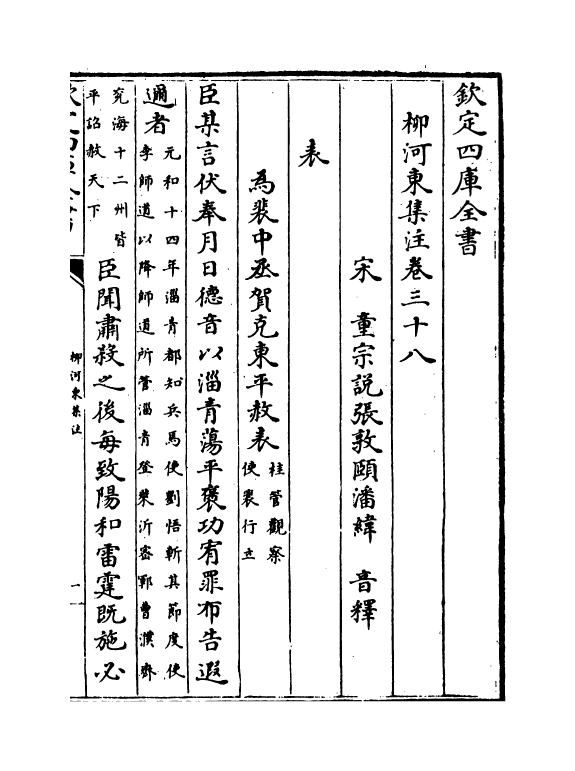 欽定四庫全書
柳河東集注卷三十八
宋 童宗說張敦頤潘緯 音釋
表
為裴中丞賀克東平赦表桂管觀察使裴行立
臣某言伏奉月日德音以淄青蕩平褒功宥罪布告遐
邇者元和十四年淄青都知兵馬使劉悟斬其節度使李師道以降師道所管淄青登萊沂密鄆曹濮齊
兖海十二州皆平詔赦天下臣聞肅殺之後每致陽和雷霆既施必
柳河東集注
一